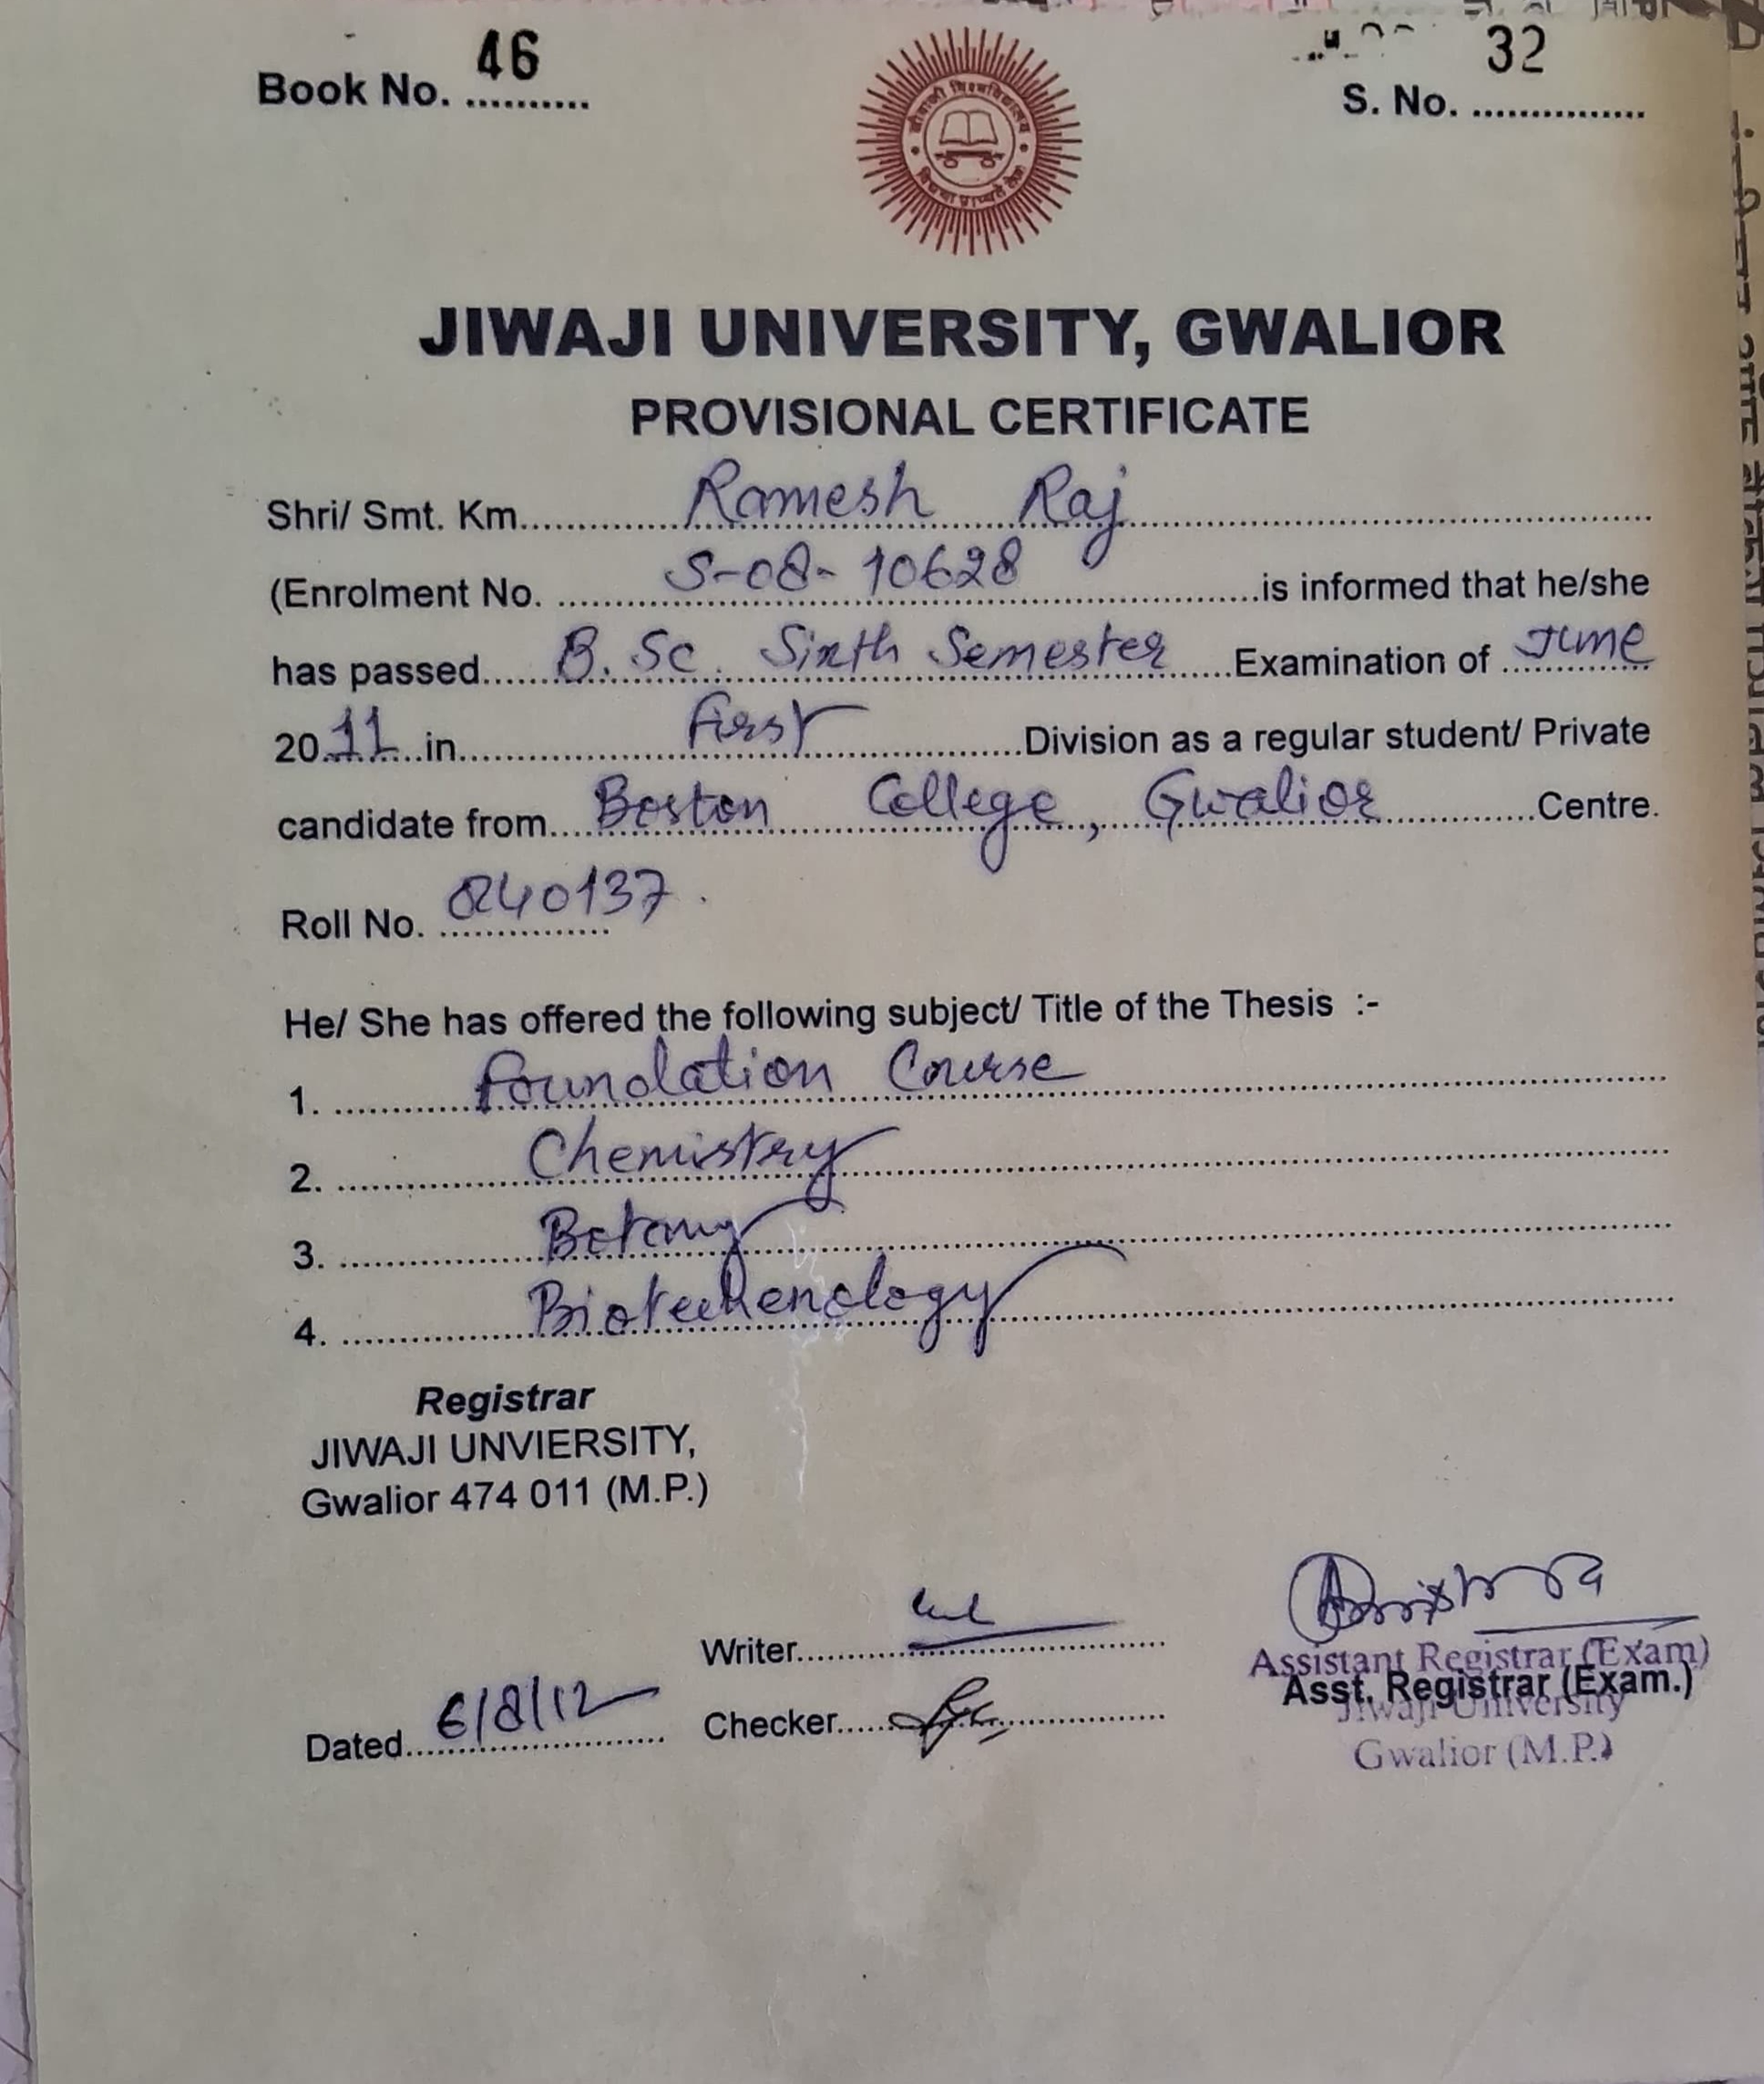 46
32
Book No. ..........
S. No. ...............
जीवाजी विश्वविद्यालय
JIWAJI UNIVERSITY, GWALIOR
PROVISIONAL CERTIFICATE
Shri/ Smt. Km. Ramesh Raj
(Enrolment No. S-08-10628 is informed that he/she
has passed B. Sc. Sixth Semester Examination of June
20 11 in First Division as a regular student/ Private
candidate from Boston College, Gwalior Centre.
Roll No. 840137.
He/ She has offered the following subject/ Title of the Thesis :-
1. Foundation Course
2. Chemistry
3. Botany
4. Biotechenology
Registrar
JIWAJI UNVIERSITY,
Gwalior 474 011 (M.P.)
Writer
Assistant Registrar (Exam)
Asst. Registrar (Exam.)
Jiwaji University
Dated 6/8/12 Checker
Gwalior (M.P.)